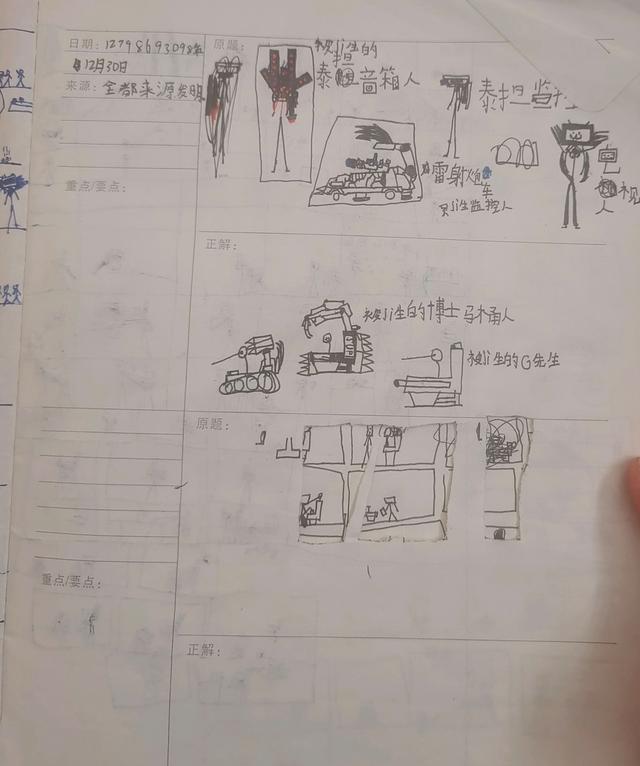 日期：12798693098年
12月30日
来源：全都来源发明
原题：
被ji生的
泰担音箱人
泰担监控
雷射炮
车
只ji生监控人
电
视
人
重点/要点：
正解：
被ji生的博士马桶人
被ji生的G先生
原题：
重点/要点：
正解：